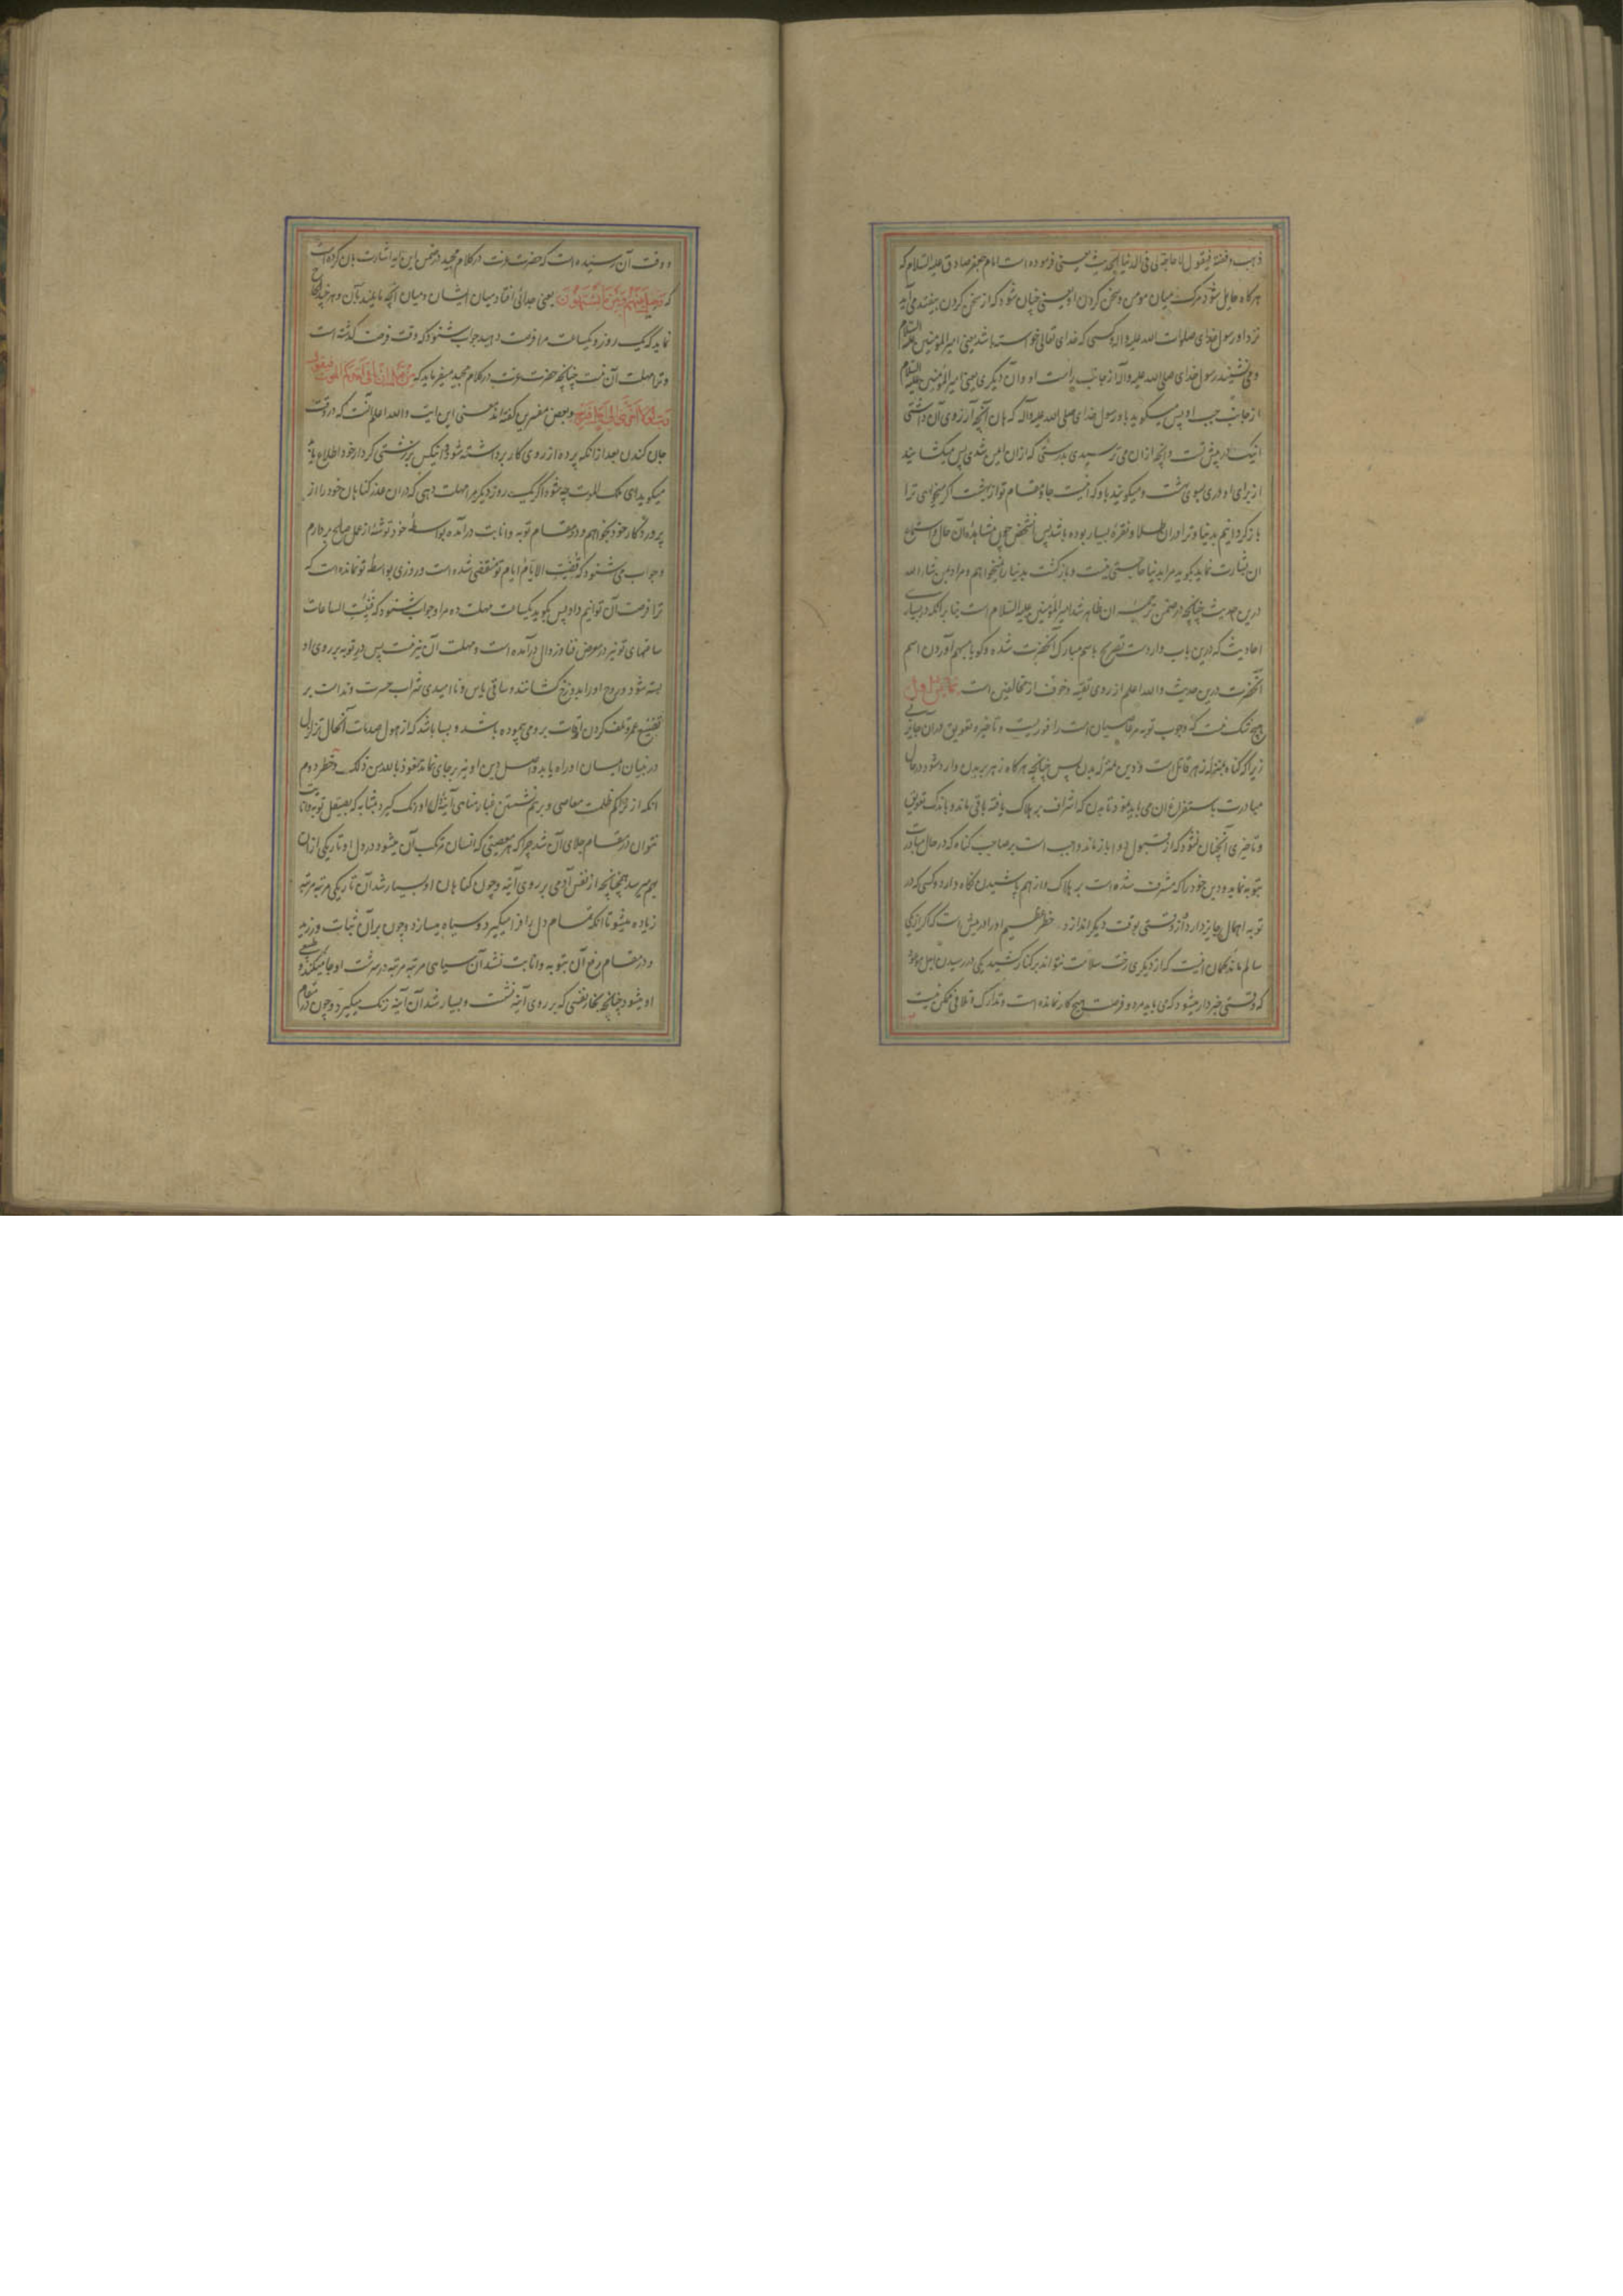 ذهب و فضة فیقول لا حاجة لی فی الدنیا الحدیث یعنی فرموده است امام جعفر صادق علیه السلام که
هرگاه حایل شود مرگ میان مومن و سخن کردن او یعنی چنان شود که از سخن کردن بیفتد می آید
نزد او رسول خدای صلوات الله علیه و اله و کسی که خدای تعالی خواسته باشد یعنی امیر المؤمنین علیه السلام
و می نشیند رسول خدای صلی الله علیه و آله از جانب راست او و آن دیگری یعنی امیر المؤمنین علیه السلام
از جانب چپ او پس میگوید باو رسول خدای صلی الله علیه و آله که هان آنچه آرزوی آن داشتی
اینک در پیش تست و آنچه ازان می ترسیدی بدرستی که ازان ایمن شدی پس میگشایند
از برای او دری بسوی بهشت و میگویند باو که اینست جا و مقام تو از بهشت اگر میخواهی ترا
باز گردانیم بدنیا و ترا دران طلا و نقره بسیار بوده باشد پس آنشخص چون مشاهده آن حال و استماع
ان بشارت نماید بگوید مرا بدنیا حاجتی نیست و بازگشت بدنیا را نمیخواهم و مراد بمن شاء الله
درین حدیث چنانچه در ضمن ترجمه ان ظاهر شد امیر المؤمنین علیه السلام است بنا بر آنکه در بسیاری
احادیث که درین باب وارد است تصریح باسم مبارک آنحضرت شده و گویا مبهم آوردن اسم
آنحضرت درین حدیث و الله اعلم از روی تقیه و خوف از مخالفین است
هیچ شک نیست که وجوب توبه مر عاصیان امت را فوریست و تاخیر و تعویق دران جایز نی
زیرا که گناه بمنزله زهر قاتل است و دین بمنزله بدن پس چنانچه هرگاه زهر بر بدن وارد شود در حال
مبادرت باستفراغ ان می باید نمود تا بدن که اشراف بر هلاک یافته باقی ماند و باندک تعویق
و تاخیری آنچنان نشود که از قبول دوا باز ماند واجب است بر صاحب گناه که در حال مبادرت
بتوبه نماید و دین خود را که مشرف شده است بر هلاک و از هم پاشیدن نگاه دارد و کسی که در
توبه اهمال جایز دارد و از وقتی بوقت دیگر اندازد دو خطر عظیم او را در پیش است که اگر از یکی
سالم ماند گمان اینست که از دیگری رخت سلامت نتواند بر کنار کشید یکی در رسیدن اجل موعود
که وقتی خبردار میشود که می باید مرد و فرصت هیچ کار نمانده است و تدارک و تلافی ممکن نیست
و وقت آن رسیده است که حضرت عزت در کلام مجید در ضمن این ایه اشارت بان کرده است
که وحیل بینهم و بین ما یشتهون یعنی جدائی افتاد میان ایشان و میان آنچه مایلند بآن و هر چند الحاح
نماید که یک روز و یکساعت مرا فرصت دهید جواب شنود که وقت فرصت گذشته است
و ترا مهلت آن نیست چنانچه حضرت عزت در کلام مجید میفرماید که من قبل ان یاتی احدکم الموت فیقول
رب لولا اخرتنی الی اجل قریب و بعض مفسرین گفته اند معنی این ایت و الله اعلم آنست که در وقت
جان کندن بعد از انکه پرده از روی کار برداشته شود و آنکس بر زشتی کردار خود اطلاع یابد
میگوید ای ملک الموت چه شود اگر یک روز دیگر مرا مهلت دهی که دران عذر گناهان خود را از
پروردگار خود بخواهم و در مقام توبه و انابت درآمده بواسطه خود توشه از عمل صالح بردارم
و جواب می شنود که فنیت الایام ایام تو منقضی شده است و روزی بواسطه تو نمانده است که
ترا فرصت آن توانیم داد پس بگوید یکساعت مهلت ده مرا و جواب شنود که فنیت الساعات
ساعتهای تو نیز در معرض فنا و زوال درآمده است و مهلت آن نیز نیست پس در توبه بر روی او
بسته شود و روح او را بدوزخ کشانند و ساقی یاس و ناامیدی شراب حسرت و ندامت بر
تضییع عمر و تلف کردن اوقات برو می پیموده باشد و بسا باشد که از هول صدمات آنحال تزلزلی
در بنیان ایمان او راه یابد و اصل دین او نیز بر جای نماند نعوذ بالله من ذلک و خطر دوم
انکه از تراکم ظلمت معاصی و بر هم نشستن غبار مناهی آینه دل او زنگ گیرد بمثابه که بصیقل توبه و انابت
نتوان در مقام جلای آن شد چرا که هر معصیتی که انسان مرتکب آن میشود در دل او تاریکی ازان
بهم میرسد همچنانچه از نفس آدمی بر روی آینه و چون گناهان او بسیار شد آن تاریکی مرتبه مرتبه
زیاده میشود تا انکه تمام دل را فرا میگیرد و سیاه میسازد و چون بر آن ثبات ورزید
و در مقام رفع آن بتوبه و انابت نشد آن سیاهی مرتبه مرتبه در سرشت او جا میکند و طبیعی
او میشود چنانچه بخار نفسی که بر روی آینه نشست و بسیار شد آن آینه زنگ میگیرد و چون در مقام